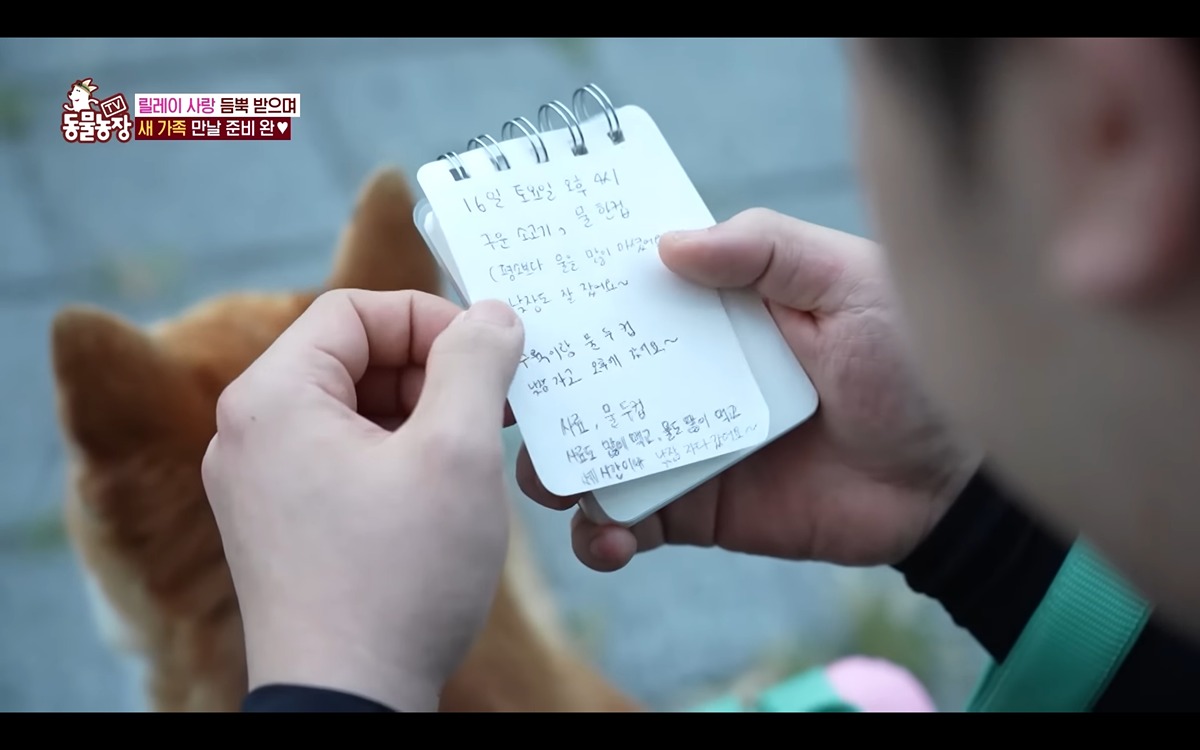 TV
동물농장
릴레이 사랑 듬뿍 받으며
새 가족 만날 준비 완♥
16일 토요일 오후 4시
구운 소고기, 물 한컵
(평소보다 물을 많이 마셨어
낮잠도 잘 잤어요~
수육이랑 물 두 컵
낮잠 자고 오후에 갔어요~
사료, 물 두컵
사료도 많이 먹고, 물도 많이 먹고
낮잠 자다 갔어요~